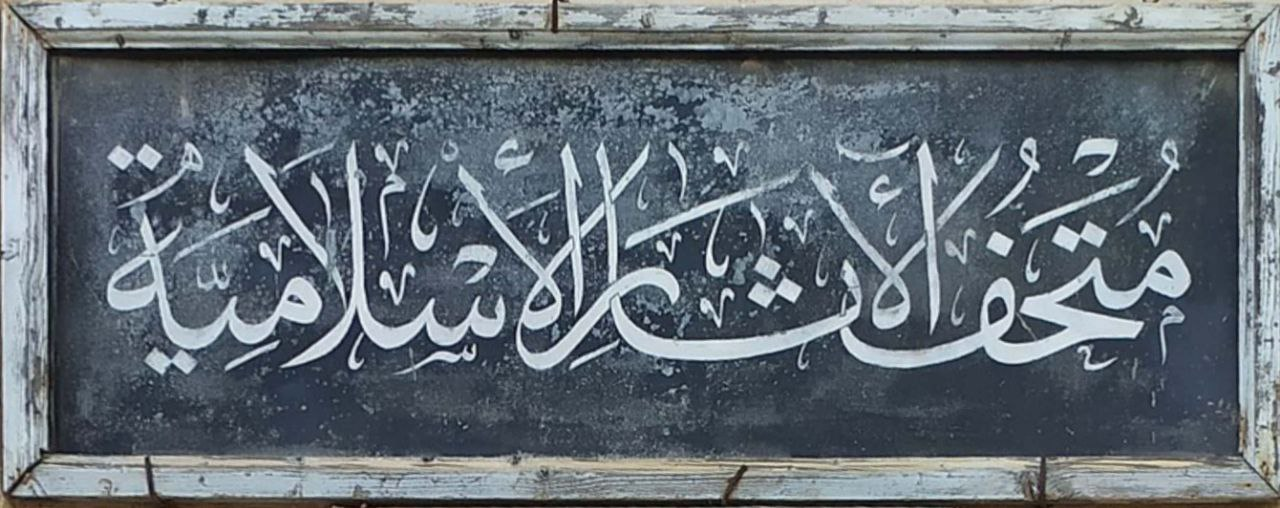 مُتْحَفُ الْأٓثَارِ الْأِسْلَامِيَّةُ